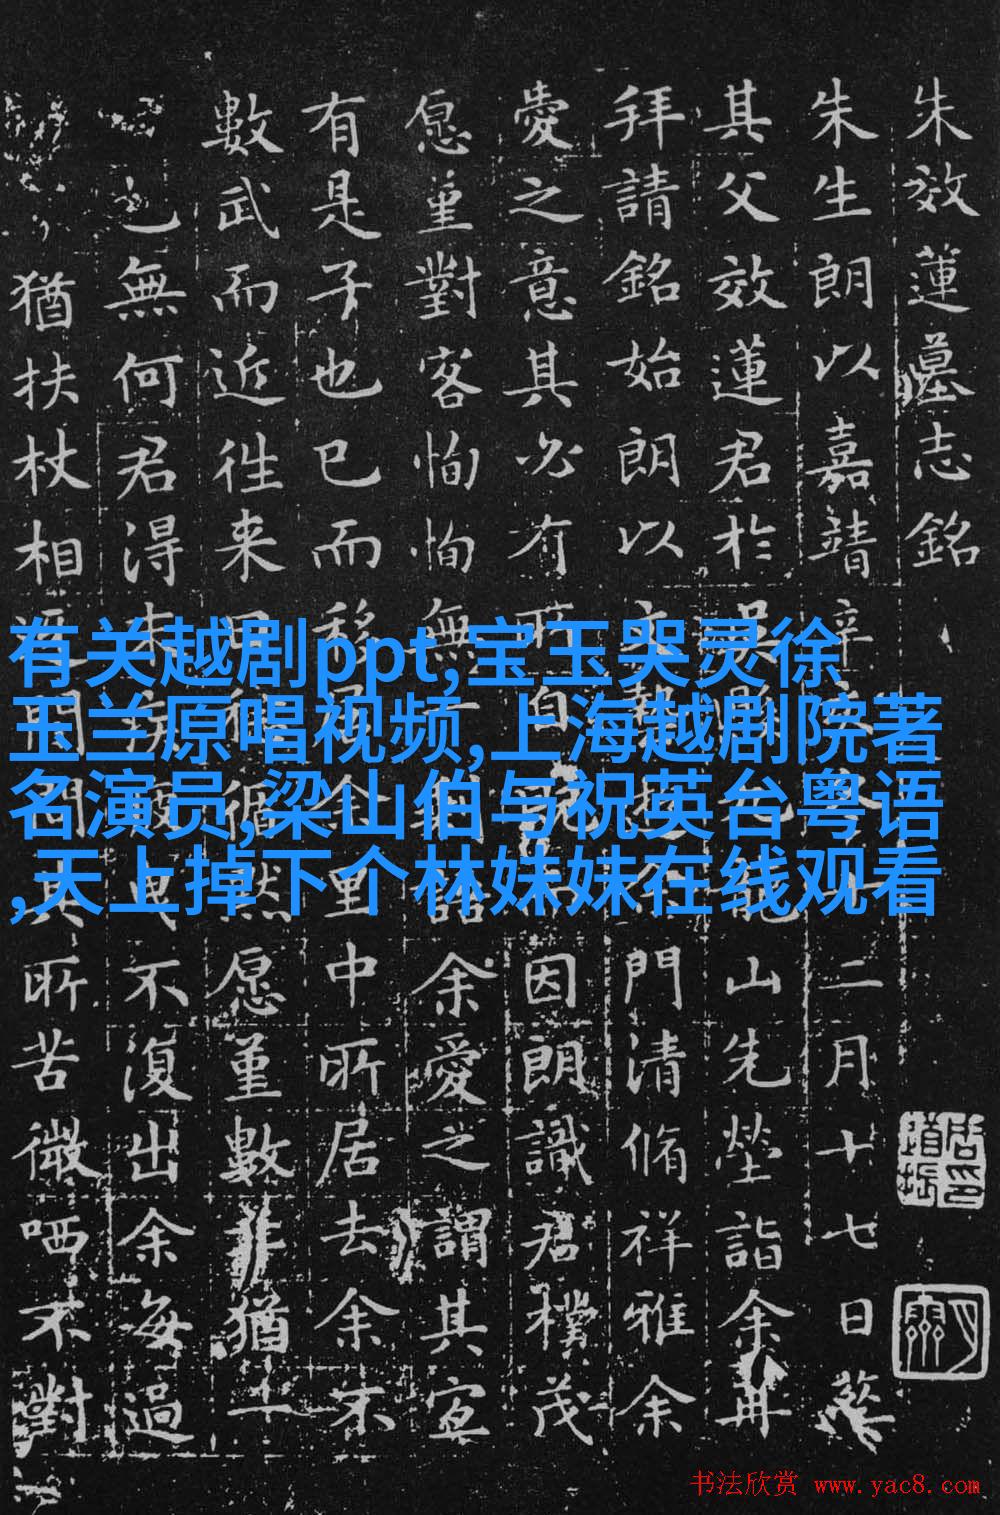 朱效蓮墓志銘
朱生朗以嘉靖辛二月十七日葬
其父效蓮君於吳縣山先塋詣余再
拜請銘始朗以文門清脩祥雅余
愛之意其必有所自因朗識君樸茂
愿重對客恂恂無余愛之謂其宜
有是子也已而移居余里中所居去余不
數武而近往来循然愿重數猶一
也無何君得末疾疲曳不復出余每過
猶扶杖相其所苦微哂不對
有关越剧ppt,宝玉哭灵徐
玉兰原唱视频,上海越剧院著
名演员,梁山伯与祝英台粤语
,天上掉下个林妹妹在线观看
书法欣赏 www.yac8.com